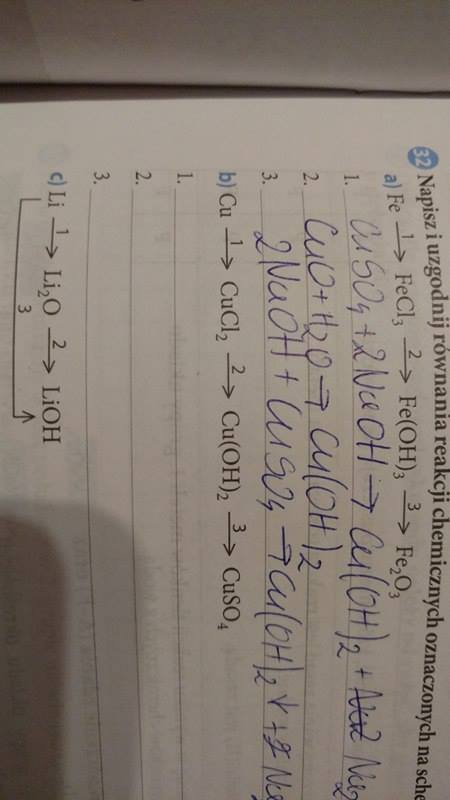 32 Napisz i uzgodnij równania reakcji chemicznych oznaczonych na sche
a) Fe 1→ FeCl₃ 2→ Fe(OH)₃ 3→ Fe₂O₃
1. CuSO₄ + 2NaOH → Cu(OH)₂ + Na₂
2. CuO + H₂O → Cu(OH)₂
3. 2NaOH + CuSO₄ → Cu(OH)₂ ↓ + Na
b) Cu 1→ CuCl₂ 2→ Cu(OH)₂ 3→ CuSO₄
1.
2.
3.
c) Li 1→ Li₂O 2→ LiOH
3